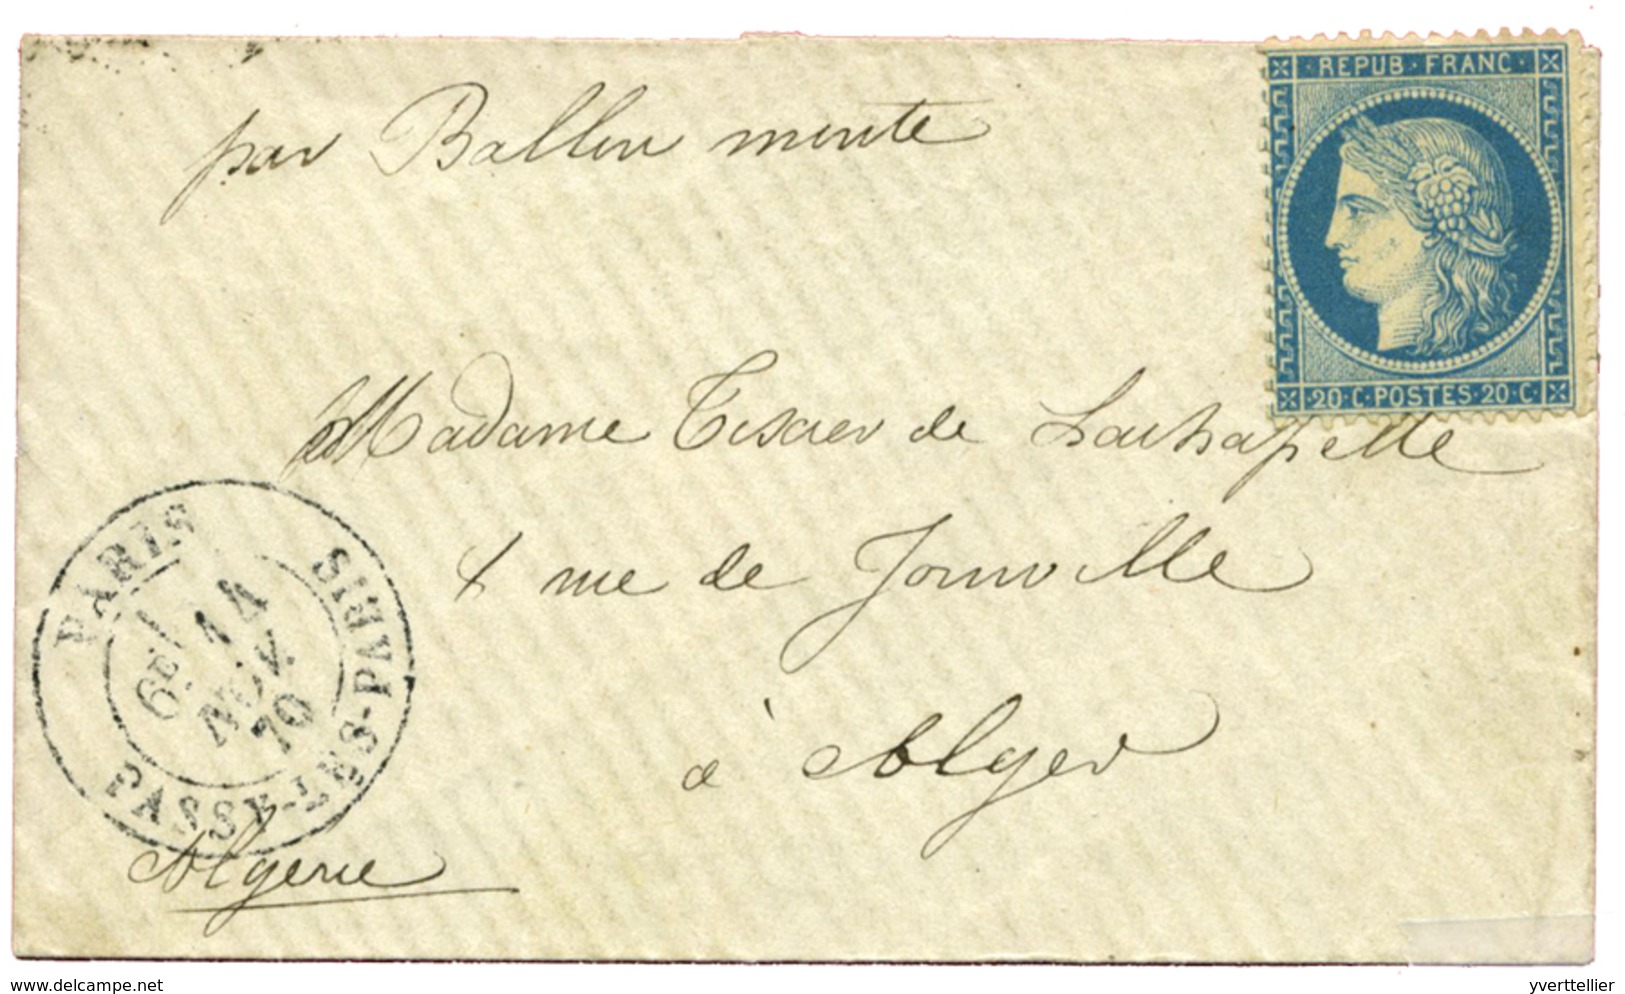 REPUB · FRANC
par Ballon monté
20 · C · POSTES · 20 · C
Madame Tissier de Lachapelle
rue de Joinville
à Alger
PARIS
PASSY-LES-PARIS
6E
14
NOV.
70
Algérie
delcampe.net
yverttellier